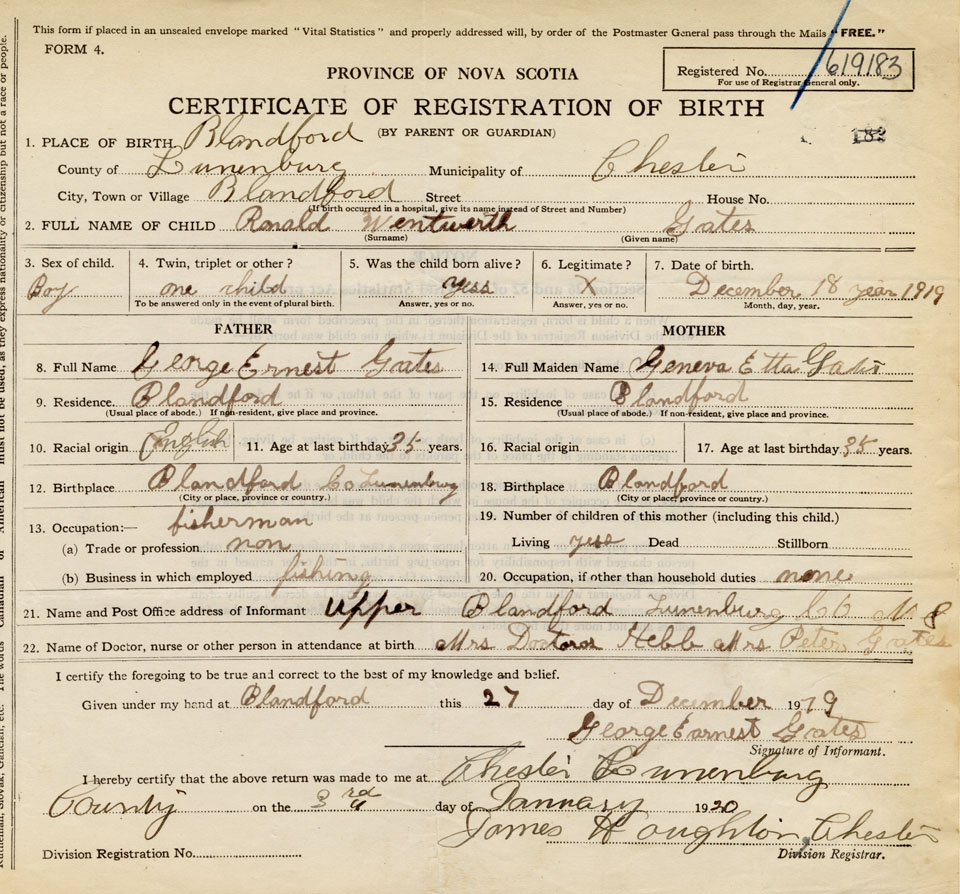 This form if placed in an unsealed envelope marked "Vital Statistics" and properly addressed will, by order of the Postmaster General pass through the Mails "FREE."
FORM 4.
Registered No. 619183
For use of Registrar General only.
PROVINCE OF NOVA SCOTIA
CERTIFICATE OF REGISTRATION OF BIRTH
(BY PARENT OR GUARDIAN)
182
1. PLACE OF BIRTH Blandford
County of Lunenburg Municipality of Chester
City, Town or Village Blandford Street House No.
(If birth occurred in a hospital, give its name instead of Street and Number)
2. FULL NAME OF CHILD Ronald Wentwerth Gates
(Surname) (Given name)
3. Sex of child. 4. Twin, triplet or other? 5. Was the child born alive? 6. Legitimate? 7. Date of birth.
Boy one child yess X December 18 year 1919
To be answered only in the event of plural birth. Answer, yes or no. Answer, yes or no. Month, day, year.
FATHER MOTHER
8. Full Name George Ernest Gates 14. Full Maiden Name Geneva Etta Gates
9. Residence. Blandford 15. Residence Blandford
(Usual place of abode.) If non-resident, give place and province. (Usual place of abode.) If non-resident, give place and province.
10. Racial origin English 11. Age at last birthday 35 years. 16. Racial origin 17. Age at last birthday 35 years.
12. Birthplace Blandford Co Lunenburg 18. Birthplace Blandford
(City or place, province or country.) (City or place, province or country.)
13. Occupation:— fisherman 19. Number of children of this mother (including this child.)
(a) Trade or profession non Living yess Dead Stillborn
(b) Business in which employed fishing 20. Occupation, if other than household duties none
21. Name and Post Office address of Informant Upper Blandford Lunenburg Co N S
22. Name of Doctor, nurse or other person in attendance at birth Mrs Doctor Hebb Mrs Peter Gates
I certify the foregoing to be true and correct to the best of my knowledge and belief.
Given under my hand at Blandford this 27 day of December 1919
George Earnest Gates
Signature of Informant.
I hereby certify that the above return was made to me at Chester Lunenburg
County on the 3rd day of January 1920
James Houghton, Chester
Division Registration No. Division Registrar.